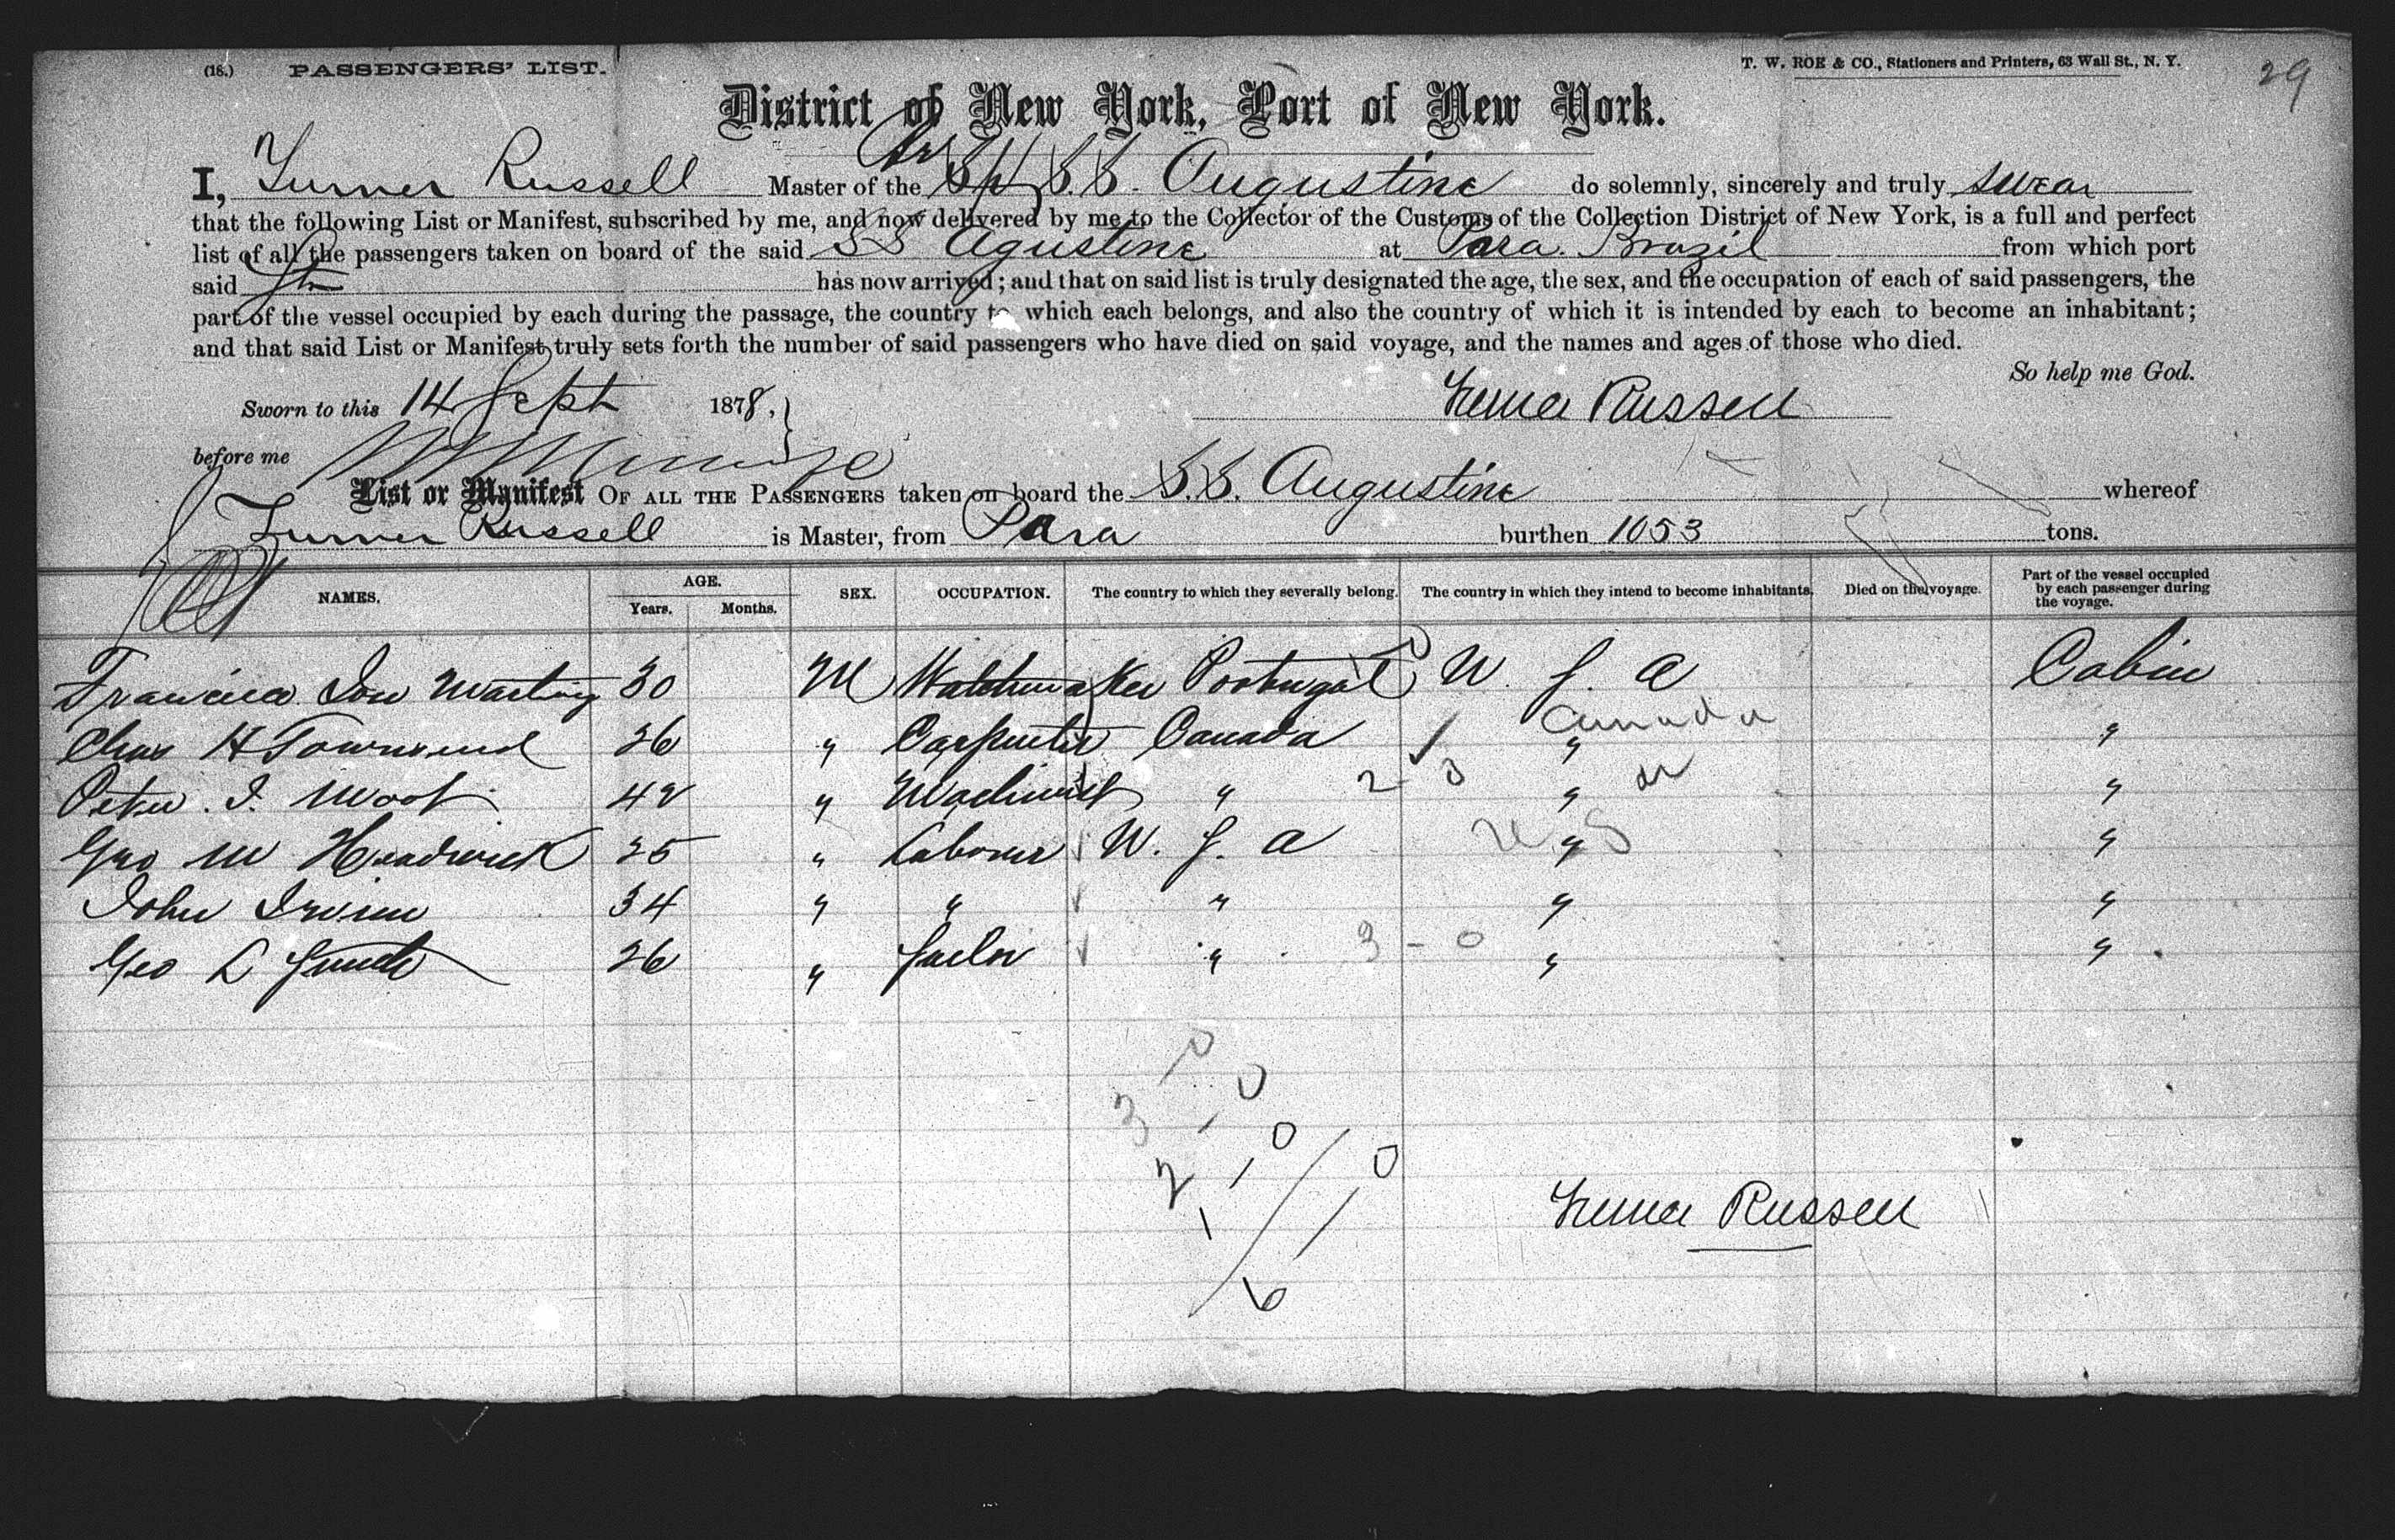 (18.) PASSENGERS' LIST. T. W. ROE & CO., Stationers and Printers, 63 Wall St., N. Y. 29
District of New York, Port of New York.
I, Turner Russell Master of the Br S.S. Augustine do solemnly, sincerely and truly swear
that the following List or Manifest, subscribed by me, and now delivered by me to the Collector of the Customs of the Collection District of New York, is a full and perfect
list of all the passengers taken on board of the said SS Agustine at Para. Brazil from which port
said Str has now arrived; and that on said list is truly designated the age, the sex, and the occupation of each of said passengers, the
part of the vessel occupied by each during the passage, the country to which each belongs, and also the country of which it is intended by each to become an inhabitant;
and that said List or Manifest truly sets forth the number of said passengers who have died on said voyage, and the names and ages of those who died.
So help me God.
Sworn to this 14 Sept 1878, Turner Russell
before me
List or Manifest OF ALL THE PASSENGERS taken on board the S.S. Augustine whereof
Turner Russell is Master, from Para burthen 1053 tons.
NAMES. AGE. Years. Months. SEX. OCCUPATION. The country to which they severally belong. The country in which they intend to become inhabitants. Died on the voyage. Part of the vessel occupied by each passenger during the voyage.
30 M Watchmaker Portugal U. S. A Cabin
Chas H Townsend 26 " Carpenter Canada " Canada "
Peter 42 " Machinist " 2 - 3 " "
Geo M 25 " Laborer U. S. A " U S "
John 34 " " " " "
Geo L 26 " Sailor " 3 - 0 " "
0
3 - 0
2 - 0 / 0
1
6
Turner Russell